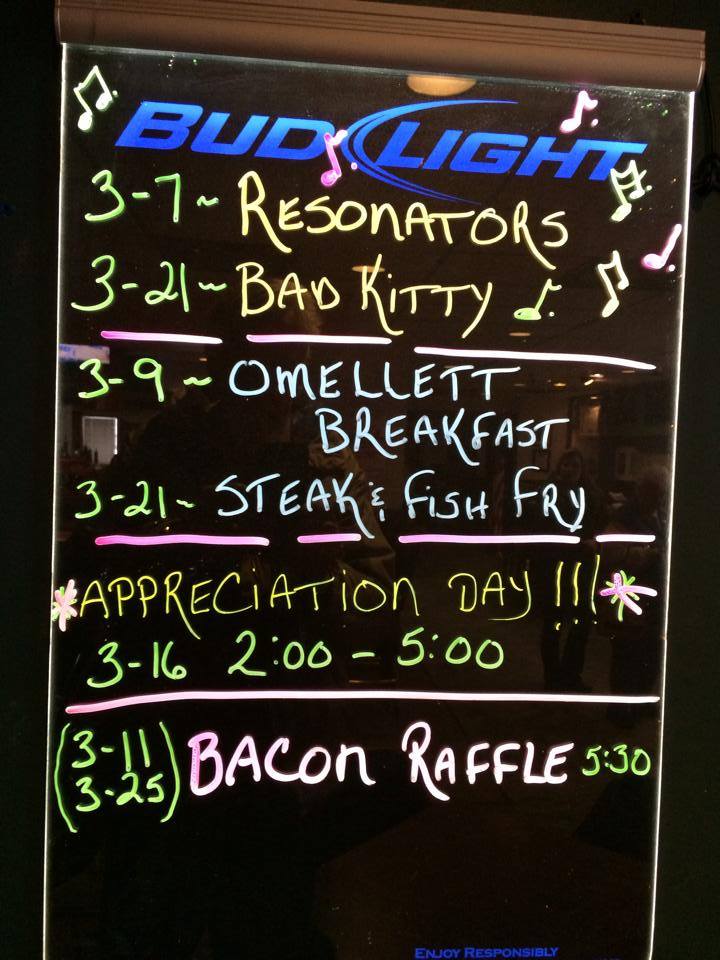 BUD LIGHT
3-7~ RESONATORS
3-21~ BAD KITTY
3-9 ~ OMELLETT
BREAKFAST
3-21~ STEAK & FISH FRY
*APPRECIATION DAY !!!*
3-16 2:00 - 5:00
(3-11
3-25) BACON RAFFLE 5:30
ENJOY RESPONSIBLY